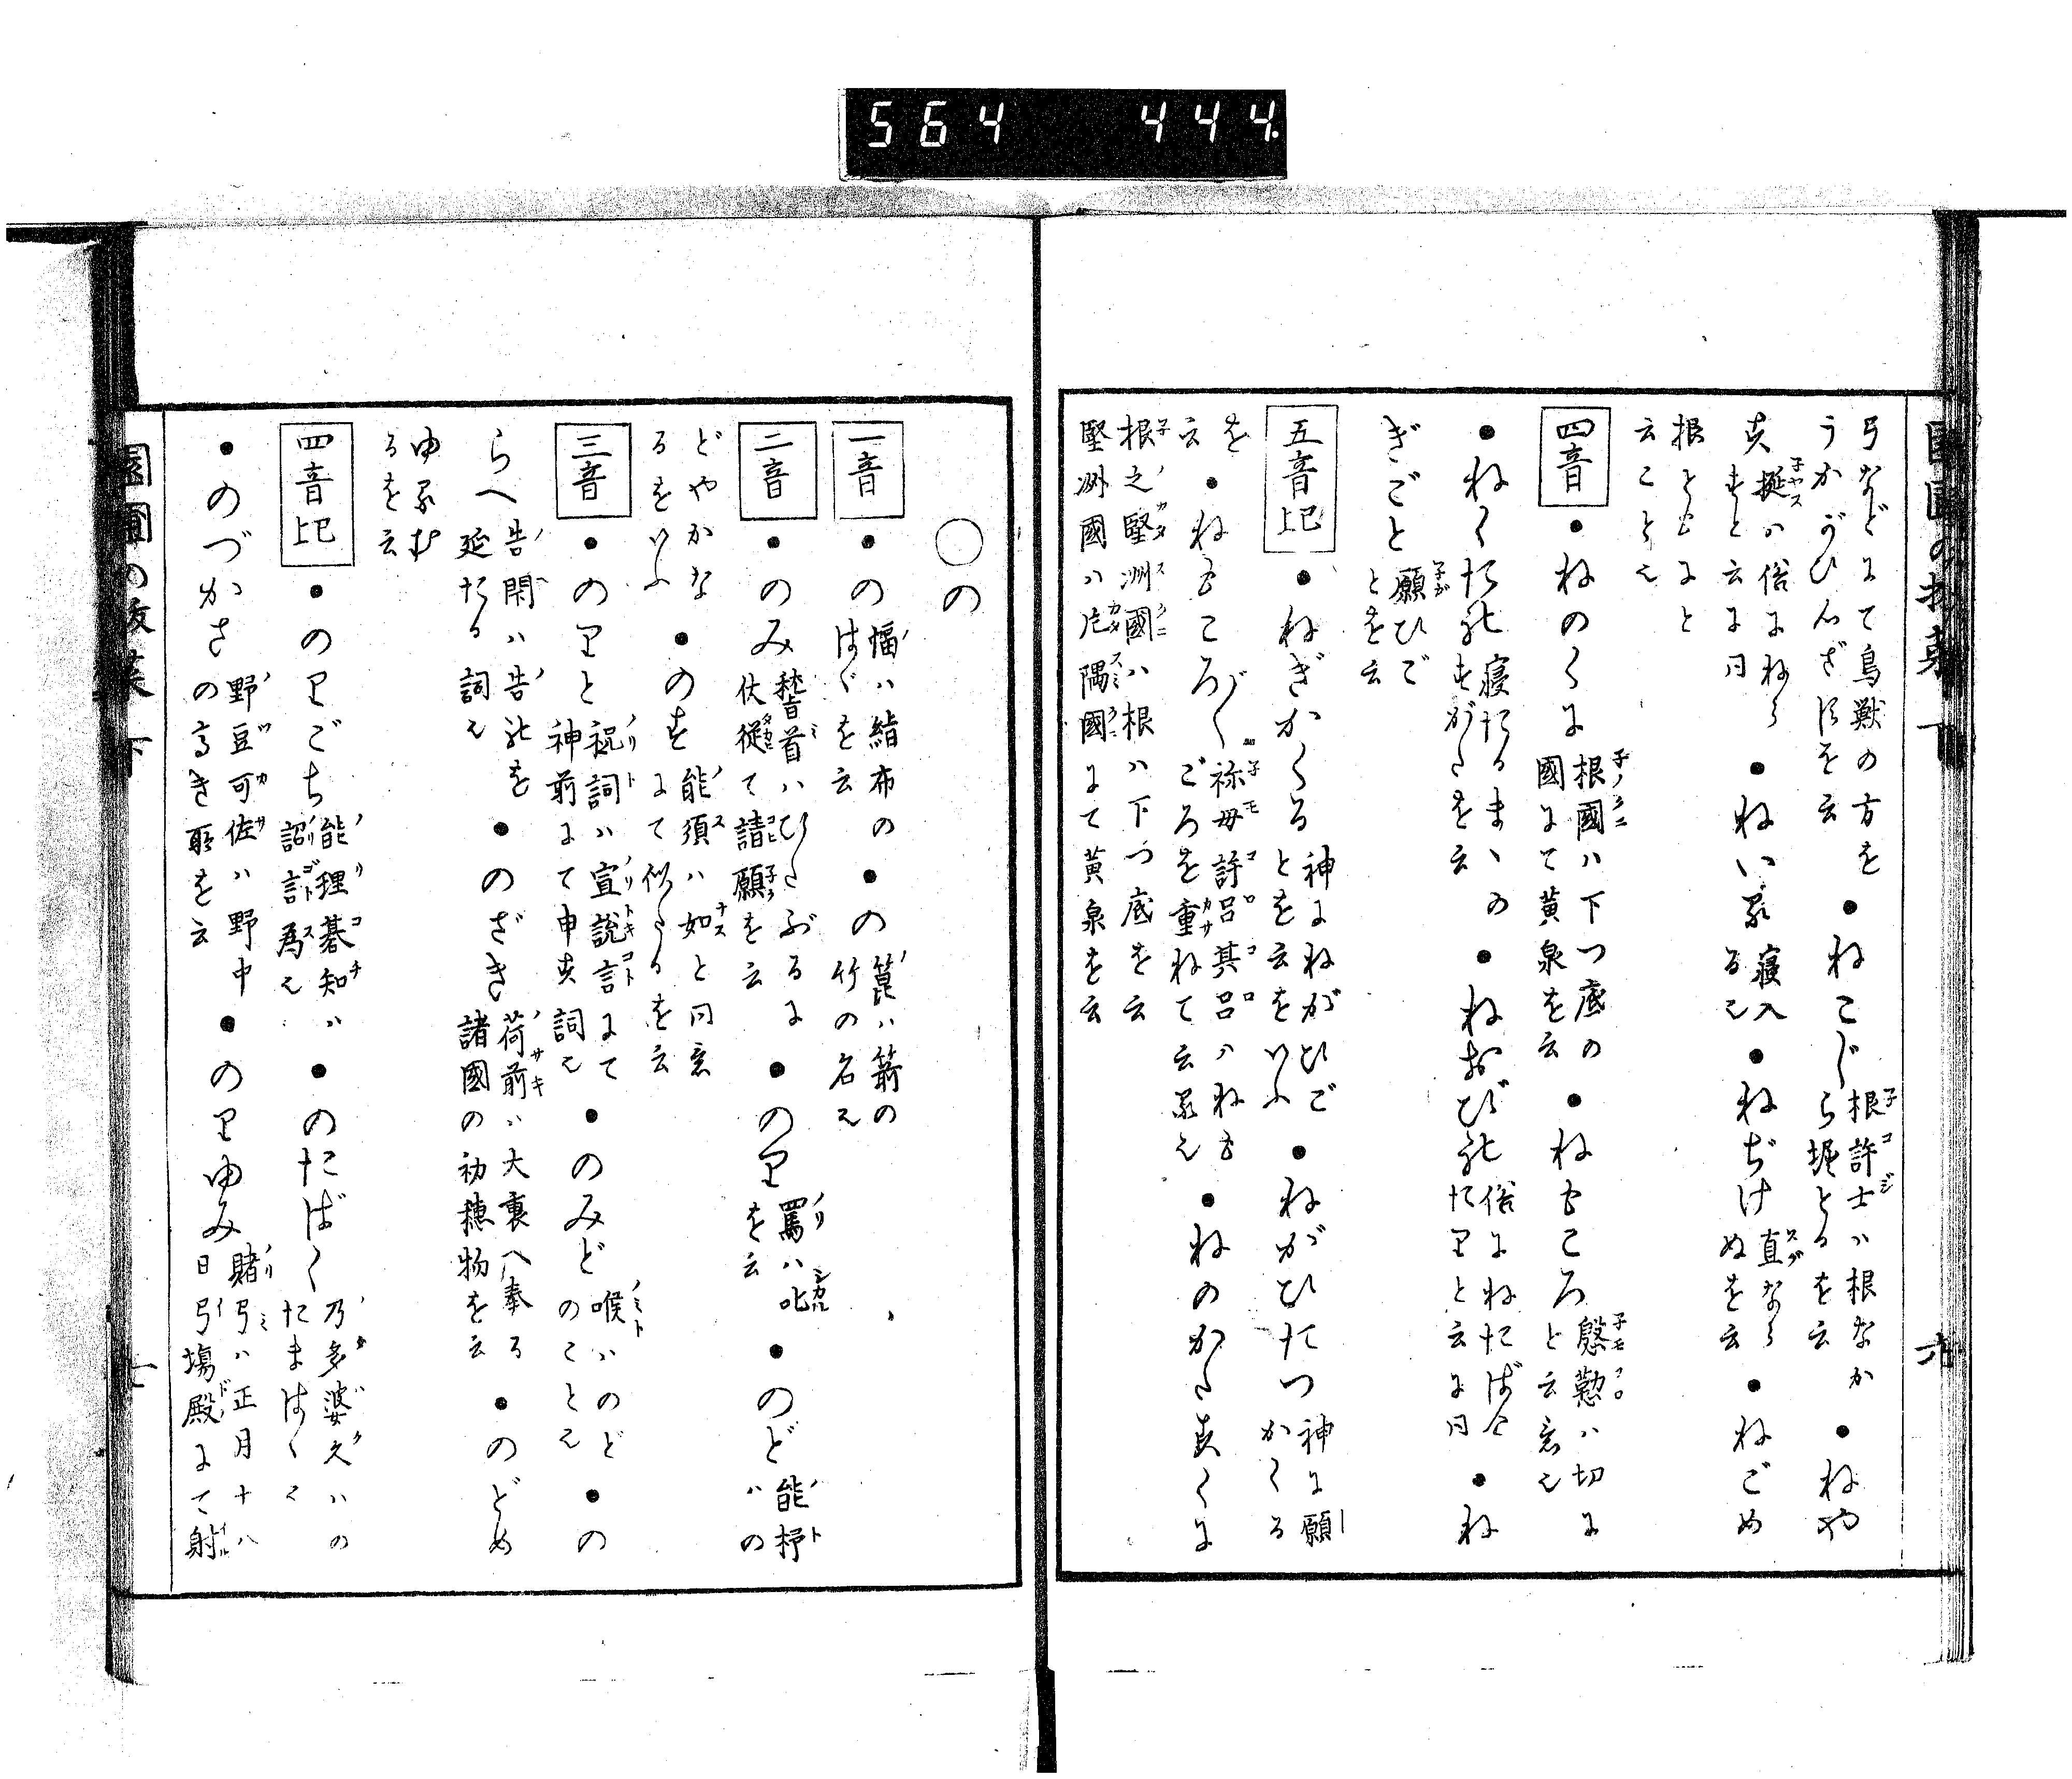 564 444.
弓などにて鳥獣の方を
うかがひんざすを云
●ねこじ
根許士ハ根なか
ら堀とるを云
●ねや
す
挺ハ俗にねら
すと云に同
●ねいる
寝入
るこ
●ねぢけ
直なら
ぬを云
●ねごめ
根ともにと
云こと也
四音
●ねのくに
根國ハ下つ底の
國にて黄泉を云
●ねもころ
慇懃ハ切に
と云意也
●ねくたれ
寝たるまゝの
すがたを云
●ねおびれ
俗にねたばけ
たりと云に同
●ね
ぎごと
願ひご
とを云
五音上巳
●ねぎかくる
神にねがひご
とを云をいふ
●ねがひたつ
神に願
かくる
を
云
●ねもころ〴〵
祢毋許呂其呂ハねも
ごろを重ねて云る也
●ねのかたすくに
根之堅洲國ハ根ハ下つ底を云
堅洲國ハ片隅國にて黄泉を云
六
○の
一音
●の
幅ハ絹布の
はゞを云
●の
箟ハ箭の
竹の名也
二音
●のみ
稽首ハひたぶるに
伏從て請願を云
●のり
罵ハ叱
を云
●のど
能杼
ハの
どやかな
るをいふ
●のす
能須ハ如と同意
にて似たるを云
三音
●のりと
祝詞ハ宣説言にて
神前にて申す詞也
●のみど
喉ハのど
のこと也
●の
らへ
告閇ハ告れを
延たる詞也
●のざき
荷前ハ大裏へ奉る
諸國の初穂物を云
●のどめ
ゆるむ
るを云
四音上巳
●のりごち
能理碁知ハ
詔言為也
●のたばく
乃多婆久ハの
たまはく也
●のづかさ
野豆可佐ハ野中
の高き所を云
●のりゆみ
賭弓ハ正月十八
日弓場殿にて射
下
七